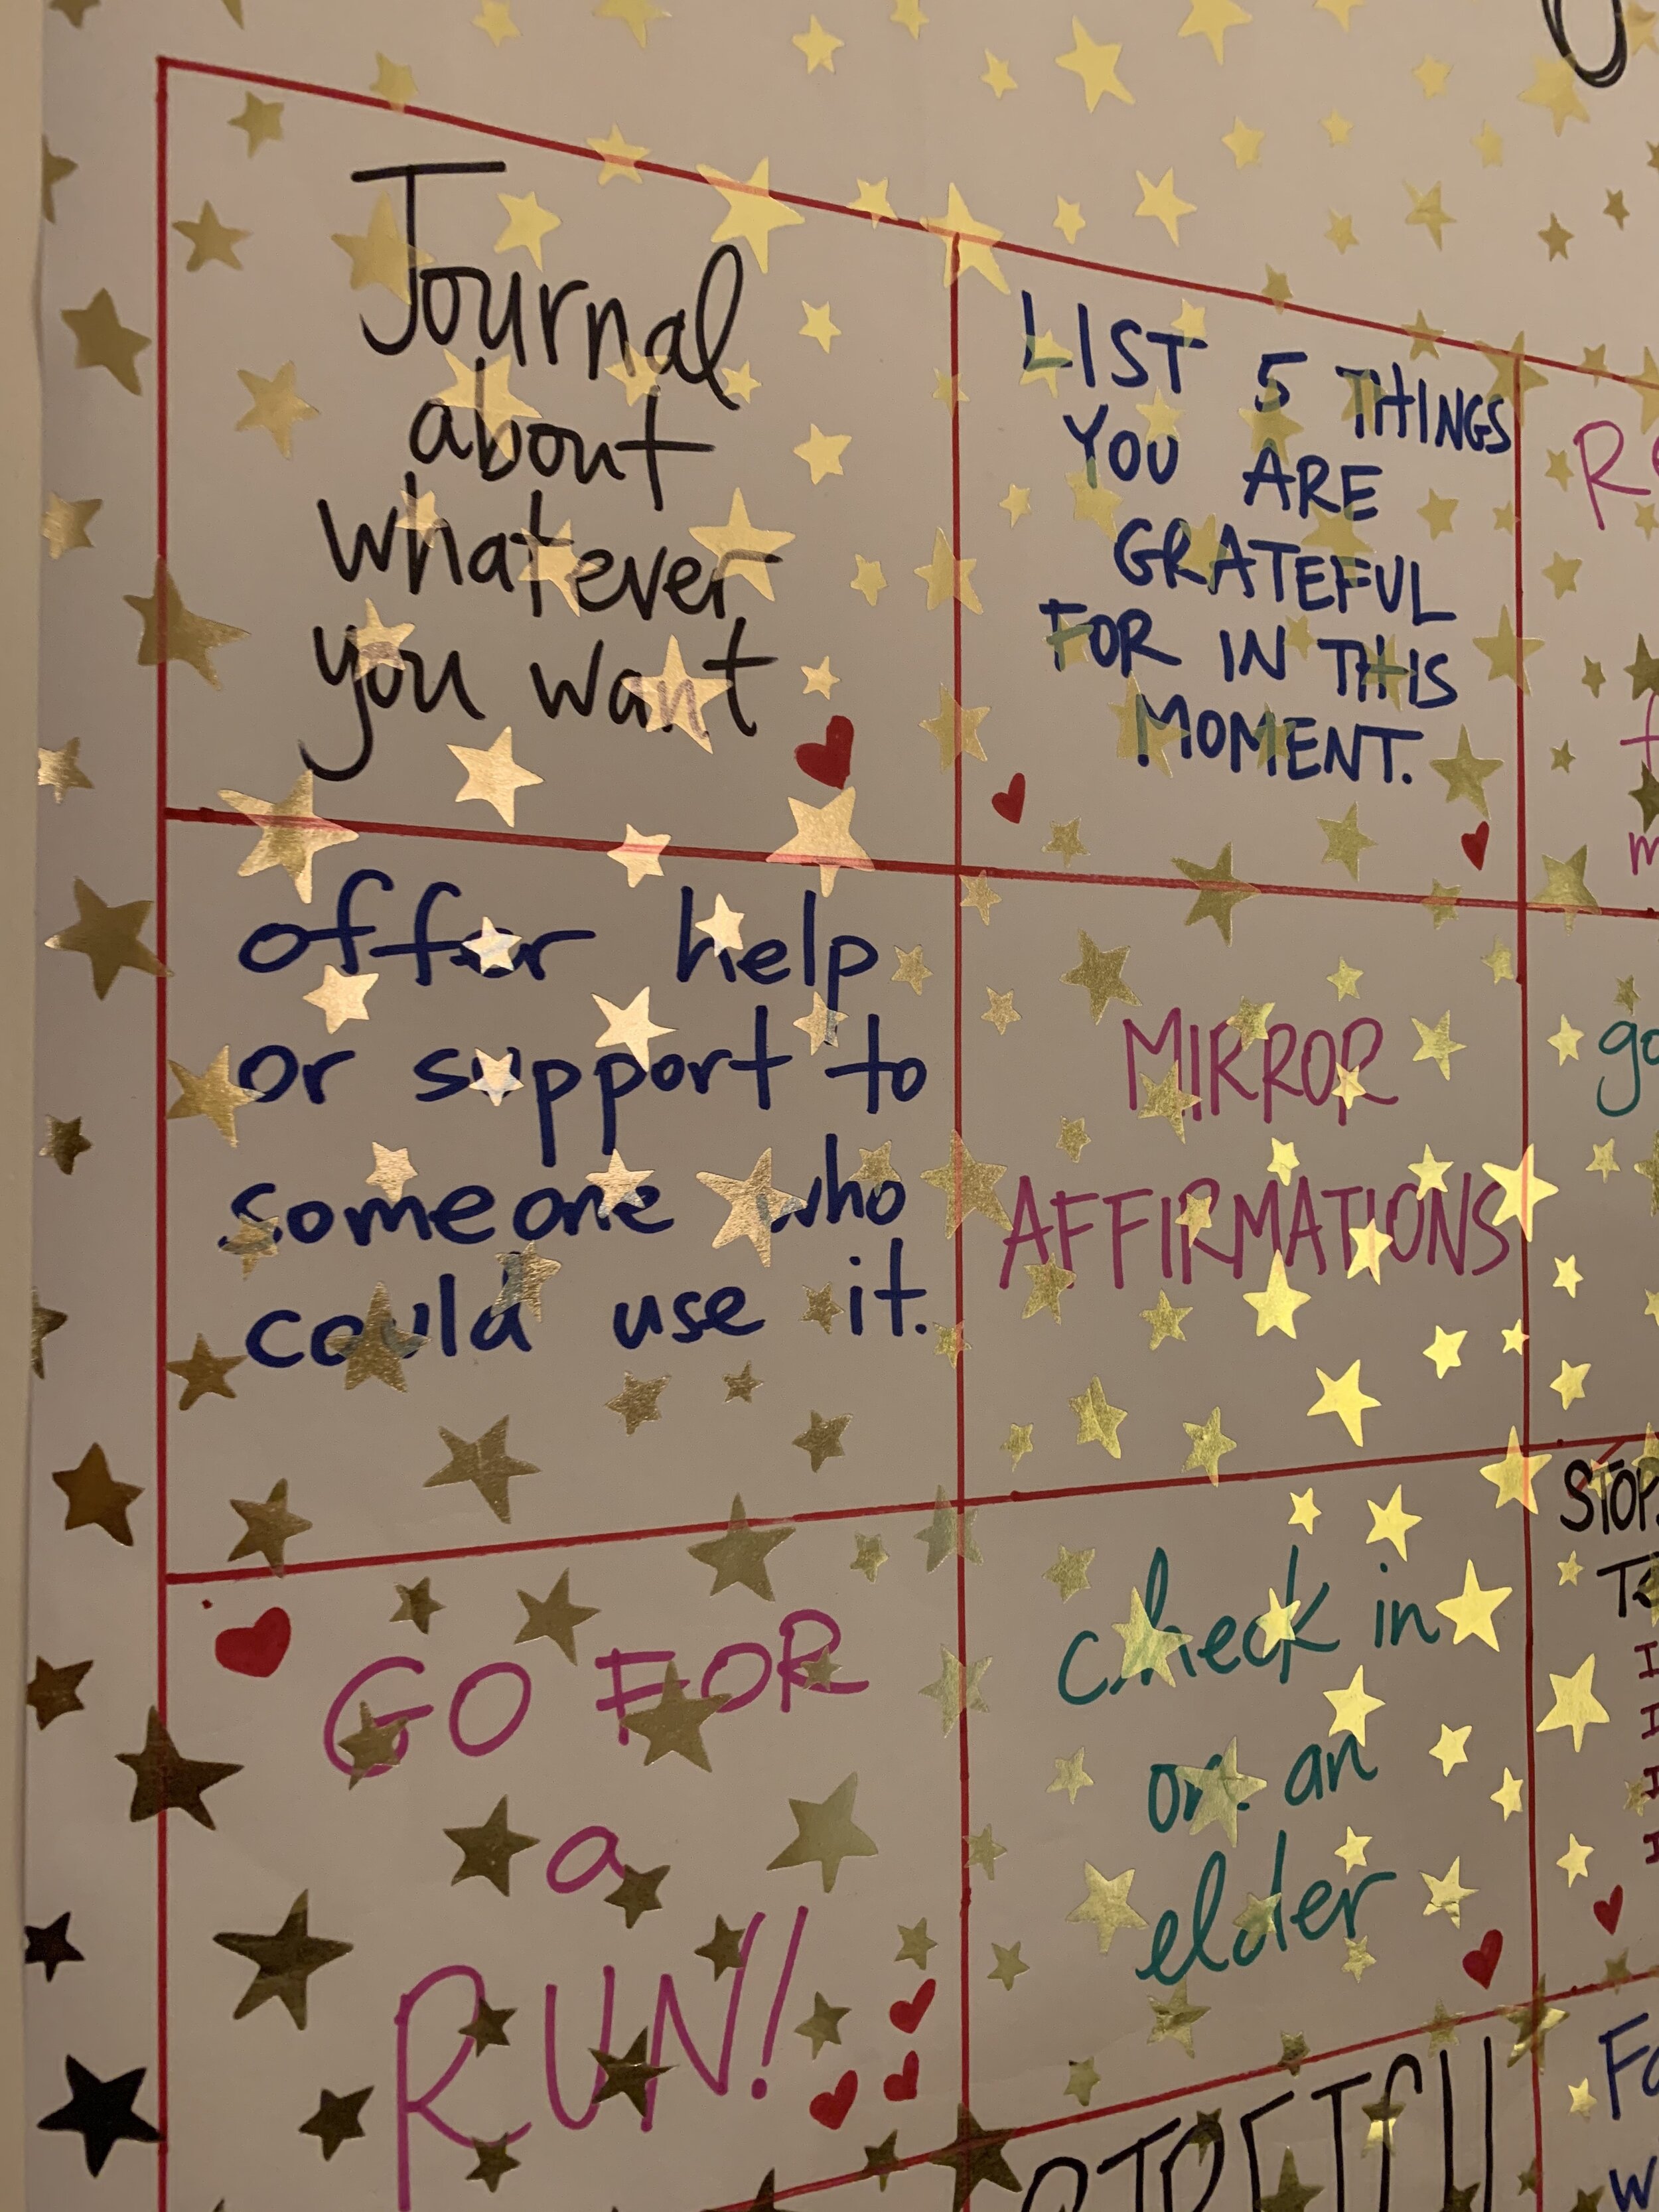 Journal
about
whatever
you want
LIST 5 THINGS
YOU ARE
GRATEFUL
FOR IN THIS
MOMENT.
offer help
or support to
someone who
could use it.
MIRROR
AFFIRMATIONS
GO FOR
a
RUN!
check in
on an
elder
STOP.
STRETCH